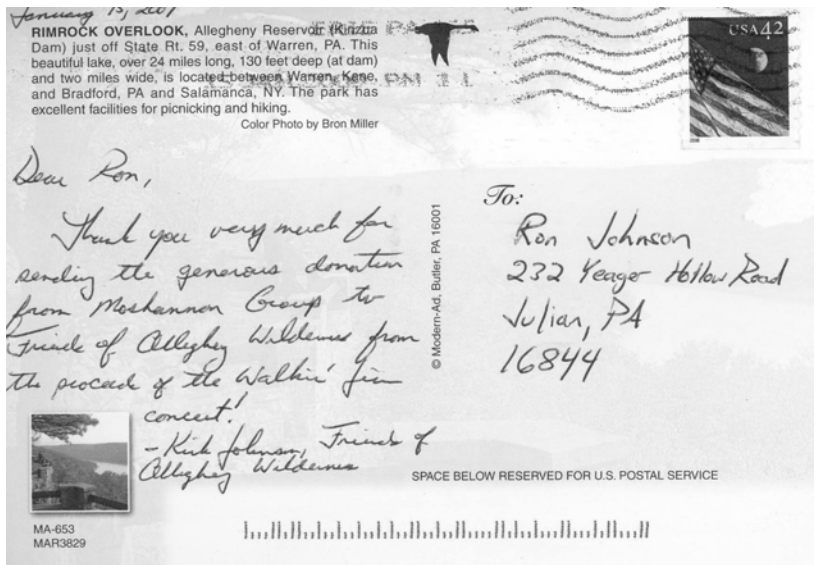 January 13, 2009
RIMROCK OVERLOOK, Allegheny Reservoir (Kinzua
Dam) just off State Rt. 59, east of Warren, PA. This
beautiful lake, over 24 miles long, 130 feet deep (at dam)
and two miles wide, is located between Warren, Kane,
and Bradford, PA and Salamanca, NY. The park has
excellent facilities for picnicking and hiking.
Color Photo by Bron Miller
ERIE PA
PM
USA 42
Dear Ron,
Thank you very much for
sending the generous donation
from Moshannon Group to
Friends of Allegheny Wilderness from
the proceeds of the Walkin' Jim
concert!
- Kirk Johnson, Friends of
Allegheny Wilderness
© Modern-Ad, Butler, PA 16001
To:
Ron Johnson
232 Yeager Hollow Road
Julian, PA
16844
SPACE BELOW RESERVED FOR U.S. POSTAL SERVICE
MA-653
MAR3829